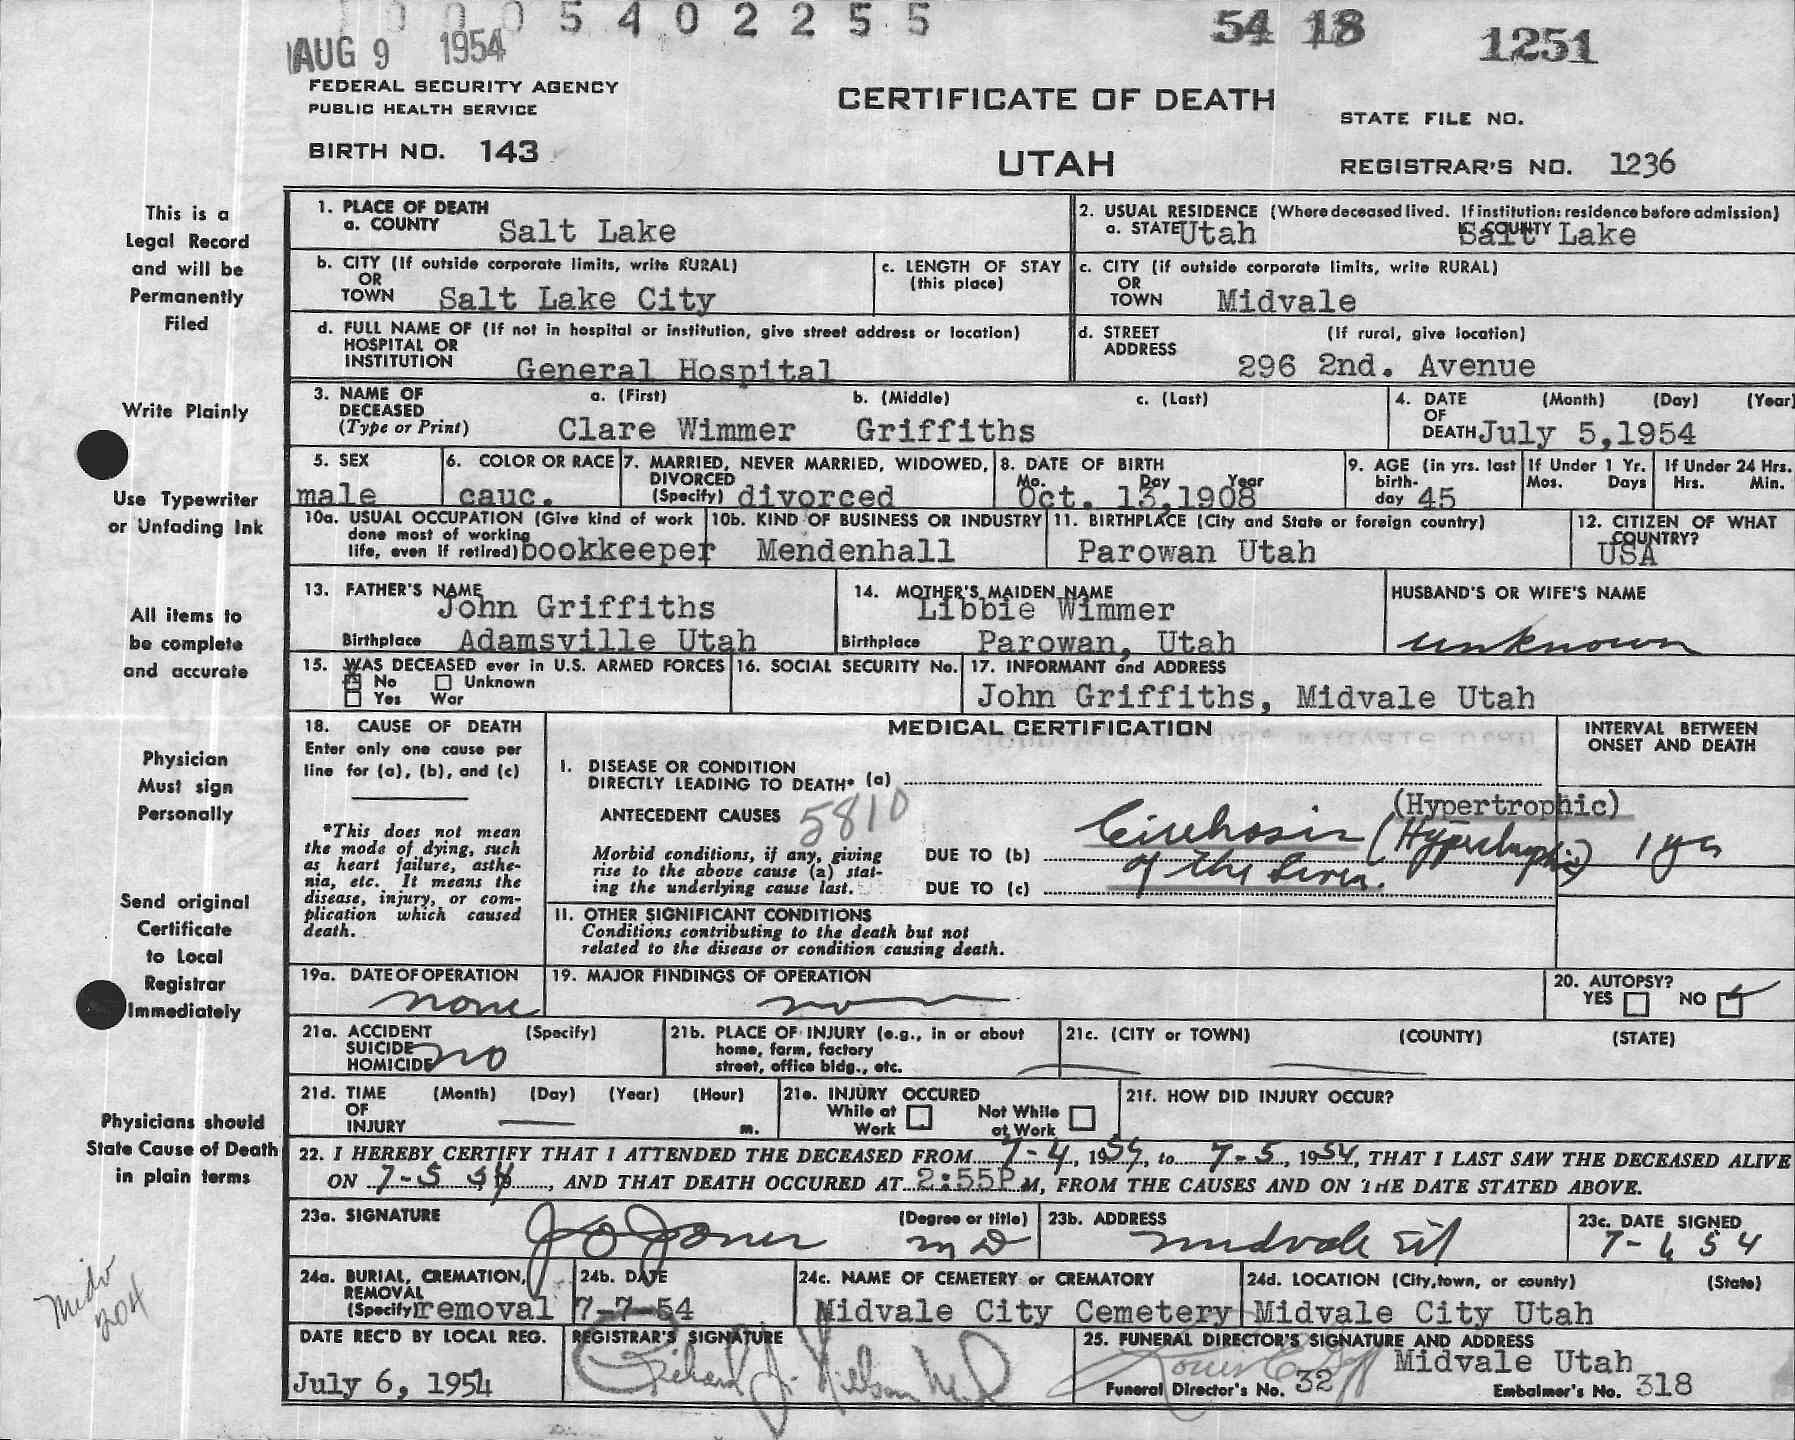 0 0 0 5 4 0 2 2 5 5
54 18
1251
AUG 9 1954
FEDERAL SECURITY AGENCY
PUBLIC HEALTH SERVICE
CERTIFICATE OF DEATH
STATE FILE NO.
BIRTH NO. 143
UTAH
REGISTRAR'S NO. 1236
This is a
Legal Record
and will be
Permanently
Filed
Write Plainly
Use Typewriter
or Unfading Ink
All items to
be complete
and accurate
Physician
Must sign
Personally
Send original
Certificate
to Local
Registrar
Immediately
Physicians should
State Cause of Death
in plain terms
Midv
204
1. PLACE OF DEATH
a. COUNTY Salt Lake
2. USUAL RESIDENCE (Where deceased lived. If institution: residence before admission)
a. STATE Utah b. COUNTY Salt Lake
b. CITY (If outside corporate limits, write RURAL)
OR
TOWN Salt Lake City
c. LENGTH OF STAY
(this place)
c. CITY (if outside corporate limits, write RURAL)
OR
TOWN Midvale
d. FULL NAME OF (If not in hospital or institution, give street address or location)
HOSPITAL OR
INSTITUTION General Hospital
d. STREET (If rural, give location)
ADDRESS 296 2nd. Avenue
3. NAME OF DECEASED (Type or Print)
a. (First) b. (Middle) c. (Last)
Clare Wimmer Griffiths
4. DATE OF DEATH (Month) (Day) (Year)
July 5,1954
5. SEX
male
6. COLOR OR RACE
cauc.
7. MARRIED, NEVER MARRIED, WIDOWED,
DIVORCED
(Specify) divorced
8. DATE OF BIRTH
Mo. Day Year
Oct. 13,1908
9. AGE (in yrs. last
birth-
day 45
If Under 1 Yr.
Mos. Days
If Under 24 Hrs.
Hrs. Min.
10a. USUAL OCCUPATION (Give kind of work
done most of working
life, even if retired) bookkeeper
10b. KIND OF BUSINESS OR INDUSTRY
Mendenhall
11. BIRTHPLACE (City and State or foreign country)
Parowan Utah
12. CITIZEN OF WHAT
COUNTRY?
USA
13. FATHER'S NAME
John Griffiths
Birthplace Adamsville Utah
14. MOTHER'S MAIDEN NAME
Libbie Wimmer
Birthplace Parowan, Utah
HUSBAND'S OR WIFE'S NAME
unknown
15. WAS DECEASED ever in U.S. ARMED FORCES
No Unknown
Yes War
16. SOCIAL SECURITY No.
17. INFORMANT and ADDRESS
John Griffiths, Midvale Utah
18. CAUSE OF DEATH
Enter only one cause per
line for (a), (b), and (c)
*This does not mean
the mode of dying, such
as heart failure, asthe-
nia, etc. It means the
disease, injury, or com-
plication which caused
death.
MEDICAL CERTIFICATION
INTERVAL BETWEEN
ONSET AND DEATH
I. DISEASE OR CONDITION
DIRECTLY LEADING TO DEATH* (a)
ANTECEDENT CAUSES 5810
(Hypertrophic)
Morbid conditions, if any, giving
rise to the above cause (a) stat-
ing the underlying cause last.
DUE TO (b) Cirrhosis (Hypertrophic) 1 yrs
DUE TO (c) of the Liver.
II. OTHER SIGNIFICANT CONDITIONS
Conditions contributing to the death but not
related to the disease or condition causing death.
19a. DATE OF OPERATION
none
19. MAJOR FINDINGS OF OPERATION
20. AUTOPSY?
YES NO
21a. ACCIDENT (Specify)
SUICIDE
HOMICIDE no
21b. PLACE OF INJURY (e.g., in or about
home, farm, factory
street, office bldg., etc.
21c. (CITY or TOWN) (COUNTY) (STATE)
21d. TIME (Month) (Day) (Year) (Hour)
OF
INJURY m.
21e. INJURY OCCURED
While at Work
Not While at Work
21f. HOW DID INJURY OCCUR?
22. I HEREBY CERTIFY THAT I ATTENDED THE DECEASED FROM 7-4, 1954, to 7-5, 1954, THAT I LAST SAW THE DECEASED ALIVE
ON 7-5 54, AND THAT DEATH OCCURED AT 2:55P M, FROM THE CAUSES AND ON THE DATE STATED ABOVE.
23a. SIGNATURE (Degree or title)
J O Jones M D
23b. ADDRESS
Midvale Ut
23c. DATE SIGNED
7-6 54
24a. BURIAL, CREMATION,
REMOVAL
(Specify) removal
24b. DATE
7-7-54
24c. NAME OF CEMETERY or CREMATORY
Midvale City Cemetery
24d. LOCATION (City, town, or county) (State)
Midvale City Utah
DATE REC'D BY LOCAL REG.
July 6, 1954
REGISTRAR'S SIGNATURE
Richard J. Nelson M.D.
25. FUNERAL DIRECTOR'S SIGNATURE AND ADDRESS
Midvale Utah
Funeral Director's No. 32 Embalmer's No. 318